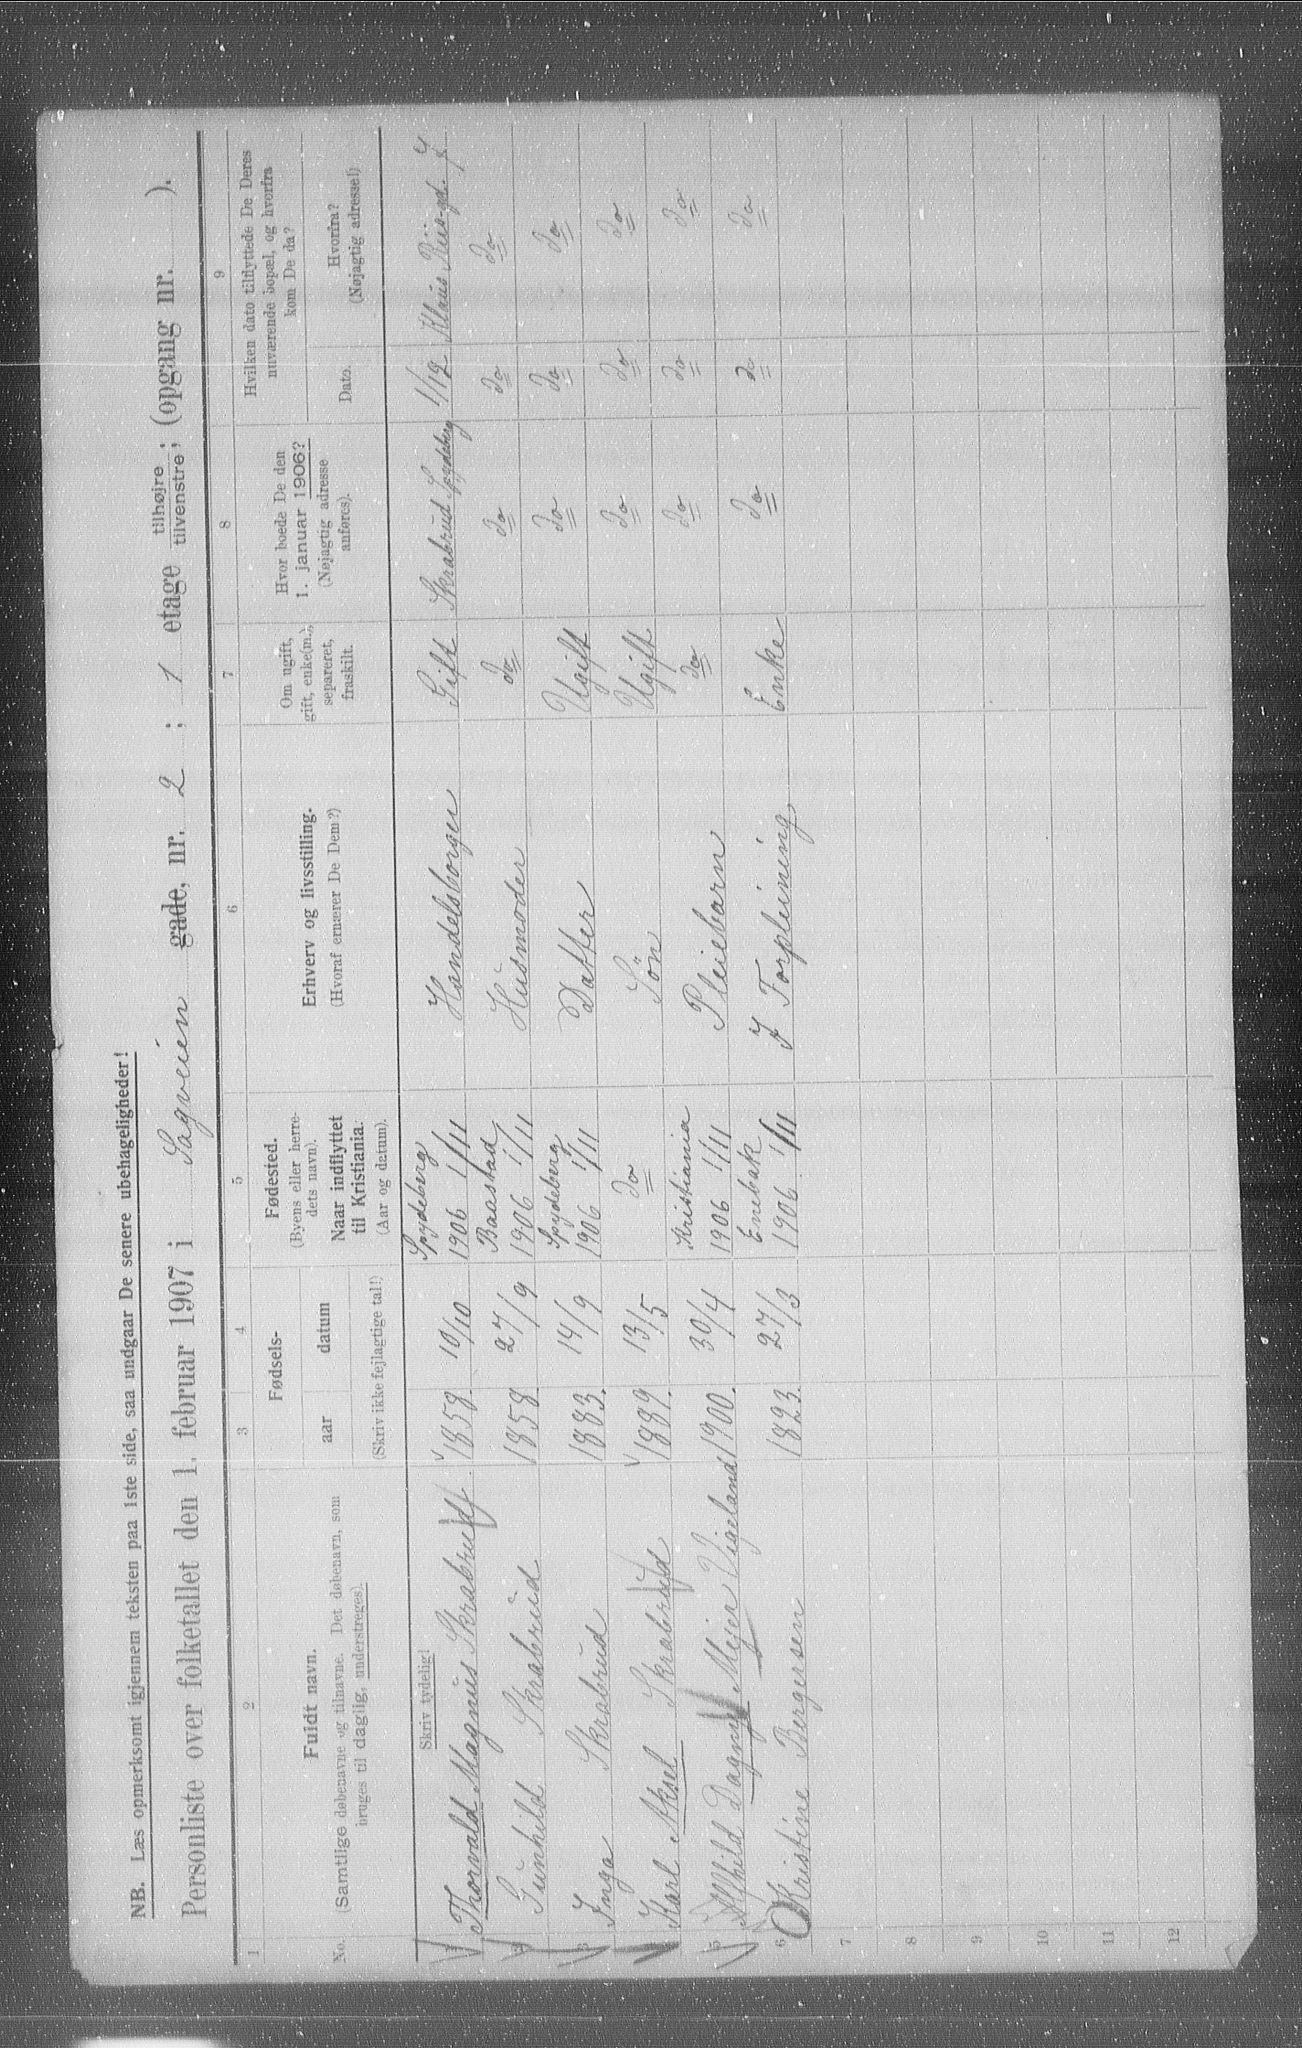 NB. Læs opmerksomt igjennem teksten paa 1ste side, saa undgaar De senere ubehageligheder!
Personliste over folketallet den 1. februar 1907 i Sagveien gade, nr. 2 ; 1 etage tilhøjre tilvenstre ; (opgang nr. ).
1 2 3 4 5 6 7 8 9
No. Fuldt navn. (Samtlige døbenavne og tilnavne. Det døbenavn, som bruges til daglig, understreges). Fødsels- aar datum (Skriv ikke fejlagtige tal!) Fødested. (Byens eller herredets navn). Naar indflyttet til Kristiania. (Aar og datum). Erhverv og livsstilling. (Hvoraf ernærer De Dem?) Om ugift, gift, enke(m.), separeret, fraskilt. Hvor boede De den 1. januar 1906? (Nøjagtig adresse anføres). Hvilken dato tilflyttede De Deres nuværende bopæl, og hvorfra kom De da? Dato. Hvorfra? (Nøjagtig adresse!)
Skriv tydelig!
1 Thorvald Magnus Skrabrud 1858. 10/10 Spydeberg 1906 1/11 Handelsborger Gift Skrabrud Spydeberg 1/12 Klaus Riis gd. 7
2 Gunhild Skrabrud 1858. 27/9 Baastad 1906 1/11 Husmoder do do do do
3 Inga Skrabrud 1883. 14/9 Spydeberg 1906 1/11 Datter Ugift do do do
4 Karl Aksel Skrabrud 1889. 13/5 do Sön Ugift do do do
5 Alfhild Dagny Mejer Vigeland 1900. 30/4 Kristiania 1906 1/11 Pleiebarn do do do do
6 Kristine Bergersen 1823. 27/3 Enebak 1906 1/11 I Forpleining Enke do do do
7
8
9
10
11
12